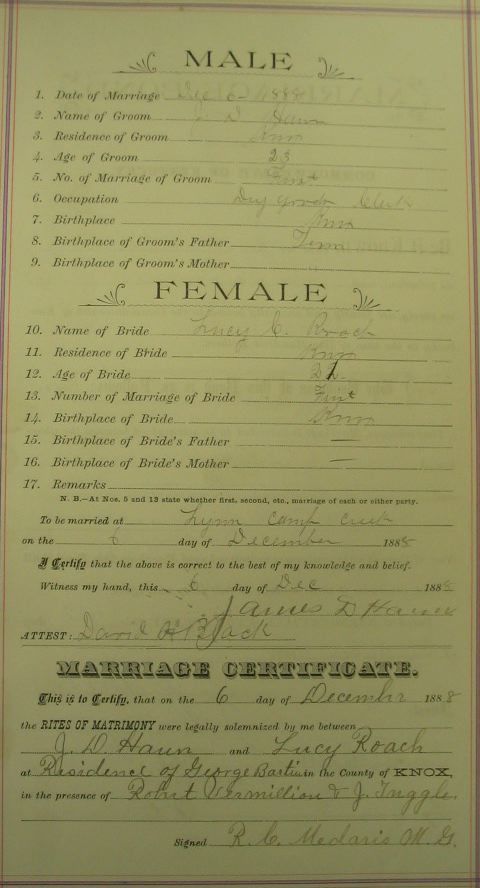 MALE
1. Date of Marriage Dec 6 - 1888
2. Name of Groom J D Haun
3. Residence of Groom Knox
4. Age of Groom 23
5. No. of Marriage of Groom First
6. Occupation Dry goods Clerk
7. Birthplace Knox
8. Birthplace of Groom's Father Tenn
9. Birthplace of Groom's Mother "
FEMALE
10. Name of Bride Lucy C. Roach
11. Residence of Bride Knox
12. Age of Bride
13. Number of Marriage of Bride First
14. Birthplace of Bride Knox
15. Birthplace of Bride's Father —
16. Birthplace of Bride's Mother —
17. Remarks
N. B.—At Nos. 5 and 13 state whether first, second, etc., marriage of each or either party.
To be married at Lynn Camp Creek
on the 6 day of December 1888
I Certify that the above is correct to the best of my knowledge and belief.
Witness my hand, this 6 day of Dec 1888
James D Haun
ATTEST: David Black
MARRIAGE CERTIFICATE.
This is to Certify, that on the 6 day of December 1888
the RITES OF MATRIMONY were legally solemnized by me between
J. D. Haun and Lucy Roach
at Residence of George Bastin in the County of KNOX,
in the presence of Robert Vermillion & J. Tuggle.
Signed R. C. Medaris M. G.